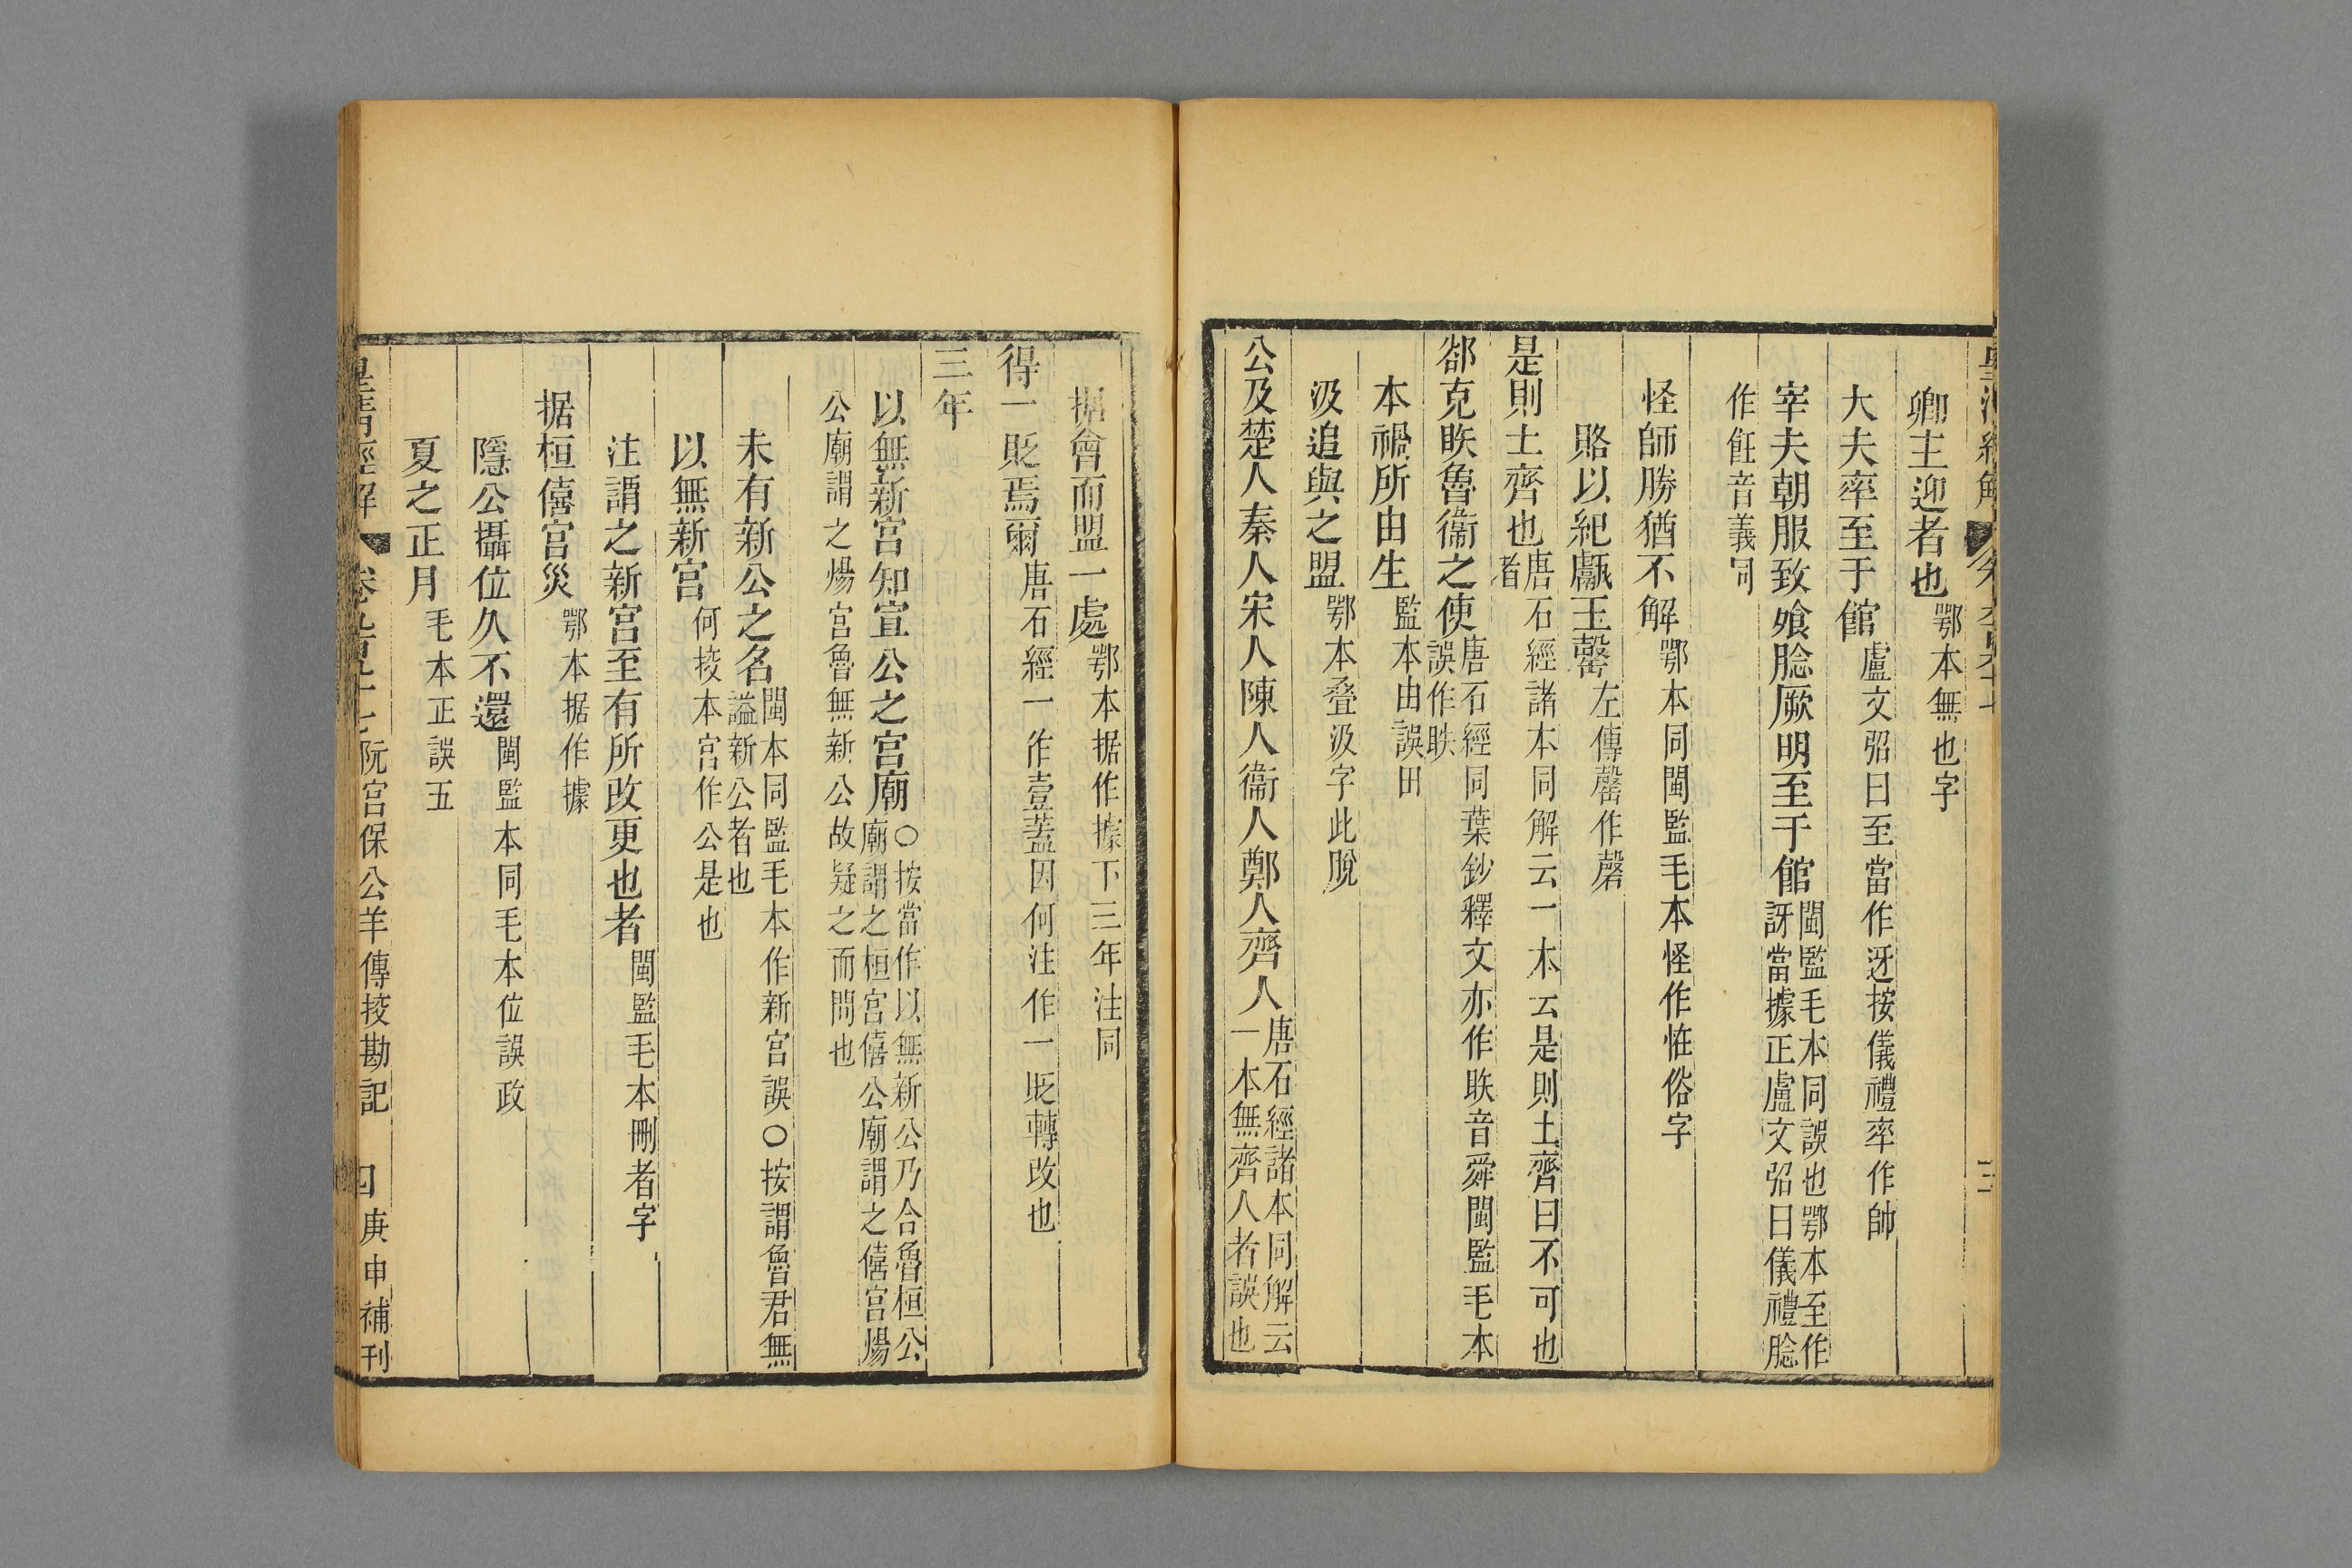 卿主迎者也鄂本無也字
大夫率至于館盧文弨曰至當作迓按儀禮率作帥
宰夫朝服致飧腍厥明至于館閩監毛本同誤也鄂本至作訝當據正盧文弨曰儀禮腍
作飪音義同
怪師勝猶不解鄂本同閩監毛本怪作恠俗字
賂以紀甗玉罄左傳罄作磬
是則土齊也唐石經諸本同解云一本云是則土齊曰不可也者
郤克眣魯衞之使唐石經同葉鈔釋文亦作眣音舜閩監毛本誤作昳
本禍所由生監本由誤田
汲追與之盟鄂本叠汲字此脫
公及楚人秦人宋人陳人衞人鄭人齊人唐石經諸本同解云一本無齊人者誤也
据會而盟一處鄂本据作據下三年注同
得一貶焉爾唐石經一作壹蓋因何注作一貶轉改也
三年
以無新宮知宣公之宮廟○按當作以無新公乃合魯桓公廟謂之桓宮僖公廟謂之僖宮煬
公廟謂之煬宮魯無新公故疑之而問也
未有新公之名閩本同監毛本作新宮誤○按謂魯君無謚新公者也
以無新宮何挍本宮作公是也
注謂之新宮至有所改更也者閩監毛本刪者字
据桓僖宮災鄂本据作據
隱公攝位久不還閩監本同毛本位誤政
夏之正月毛本正誤五
皇清經解 卷九百九十七 阮宮保公羊傳挍勘記 四 庚申補刊